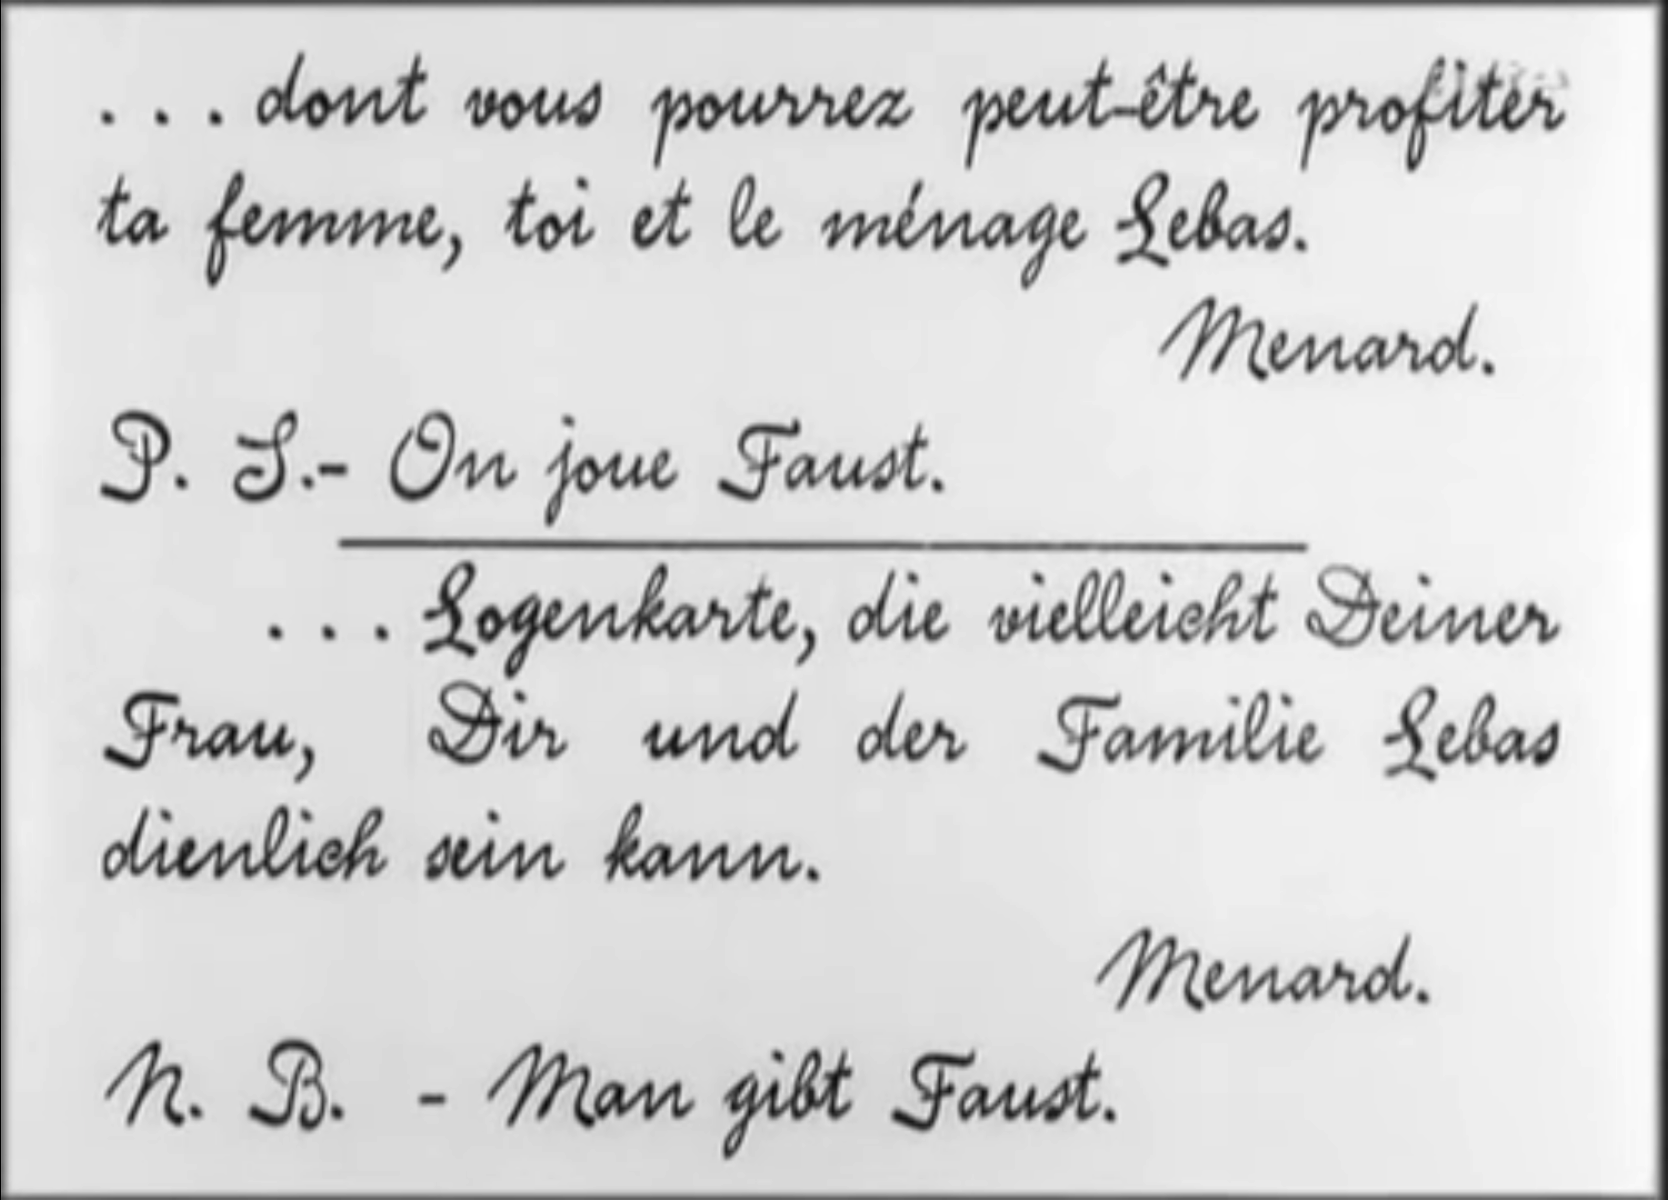 . . . dont vous pourrez peut-être profiter
ta femme, toi et le ménage Lebas.
Menard.
P. S.- On joue Faust.
. . . Logenkarte, die vielleicht Deiner
Frau, Dir und der Familie Lebas
dienlich sein kann.
Menard.
N. B. - Man gibt Faust.